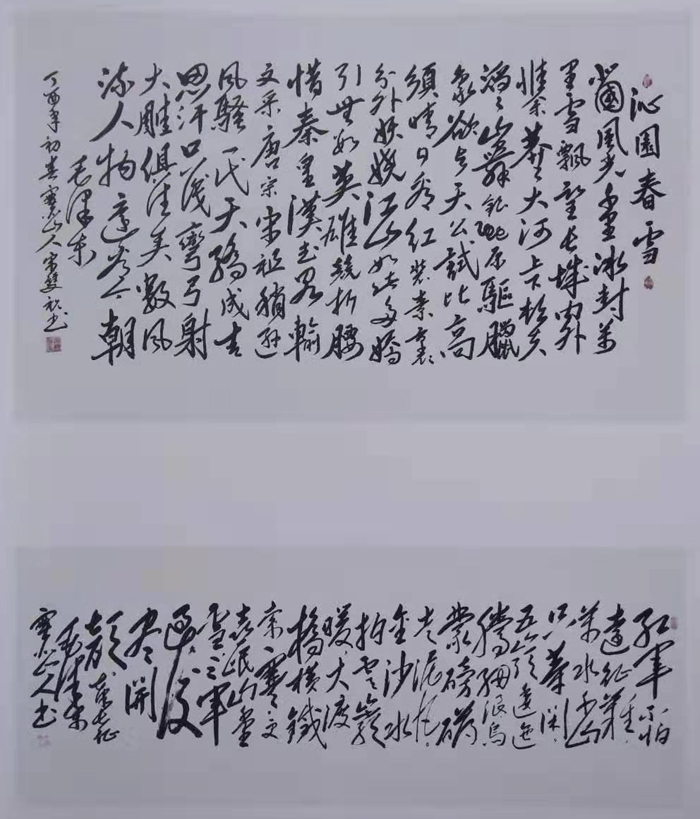 沁園春雪
北國風光千里冰封萬
里雪飄望長城內外
惟余莽莽大河上下頓失
滔滔山舞銀蛇原驅臘
象欲與天公試比高
須晴日看紅裝素裹
分外妖嬈江山如此多嬌
引無數英雄競折腰
惜秦皇漢武略輸
文采唐宗宋祖稍遜
風騷一代天驕成吉
思汗只識彎弓射
大雕俱往矣數風
流人物還看今朝
毛澤東
丁酉年初春寒山人宋雙書
紅軍不怕
遠征難
萬水千山
只等閑
五嶺逶迤
騰細浪烏
蒙磅礴
走泥丸
金沙水
拍雲崖
暖大渡
橋橫鐵
索寒更
喜岷山千里
雪三軍
過後
盡開
顏長征
毛澤東
寒山人書